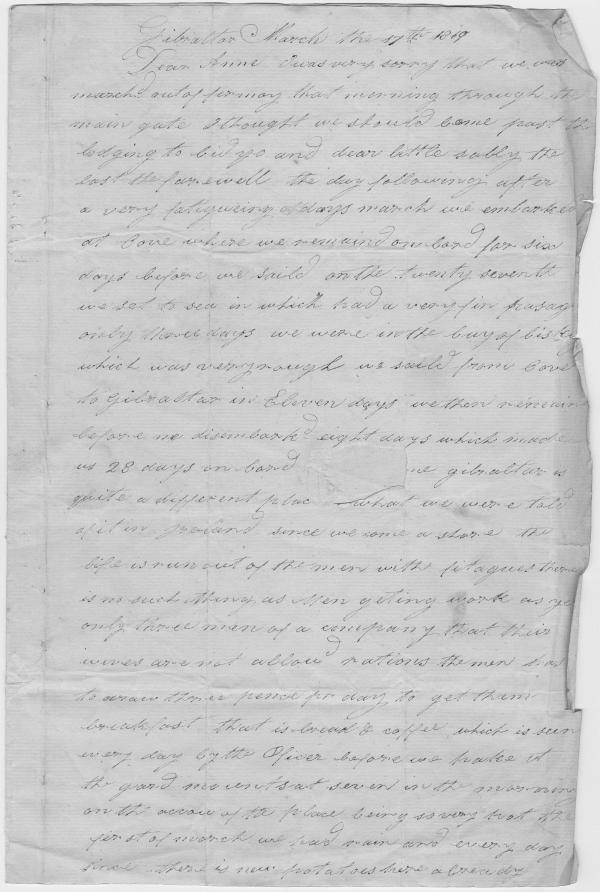 Gibraltar March the 17th 1819
Dear Anne I was very sorry that we was
march'd out of fermoy that morning through the
main gate I thought we should come past the
lodging to bid yo and dear little sally the
last the farewell the day following after
a very fatigueing days march we embarked
at Cove where we remaind on bord for six
days before we saild on the twenty seventh
we set to sea in which had a very fin pasag
only three days we were in the bay of
which was very rough we saild from Cove
to Gibraltar in Eleven days we then remain
before we disembarkd eight days which made
us 28 days on bord gibraltar is
quite a different plac what we were told
of it in Ireland since we come a shore the
life is run out of the men with fitagues there
is no such thing as Men geting work as yo
only three men of a company that their
wives are not allowd rations the men has
to draw three pence pr day to get them
breakfast that is bread & coffee which is seen
every day by the Oficer before we take it
the gard mounts at seven in the morning
on the accow of the place being so very hot the
first of march we had rain and every day
since there is new potatoes here already